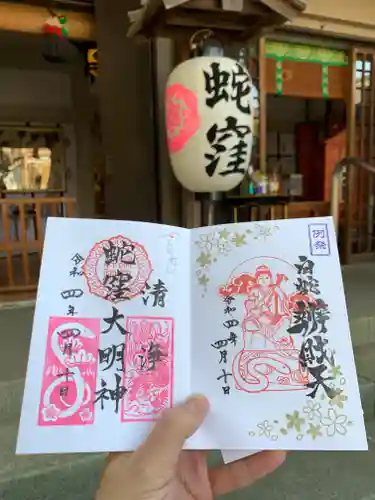 蛇窪
例祭
白蛇辨財天
令和四年四月十日
清浄
蛇窪大明神
令和四年四月十日